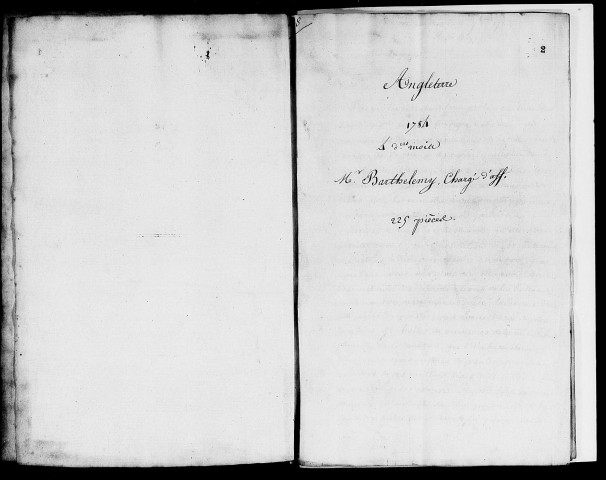 1
2
Angleterre
1784
4 d.ers mois
Mr. Barthelemy, Chargé d'aff.
225 pièces.